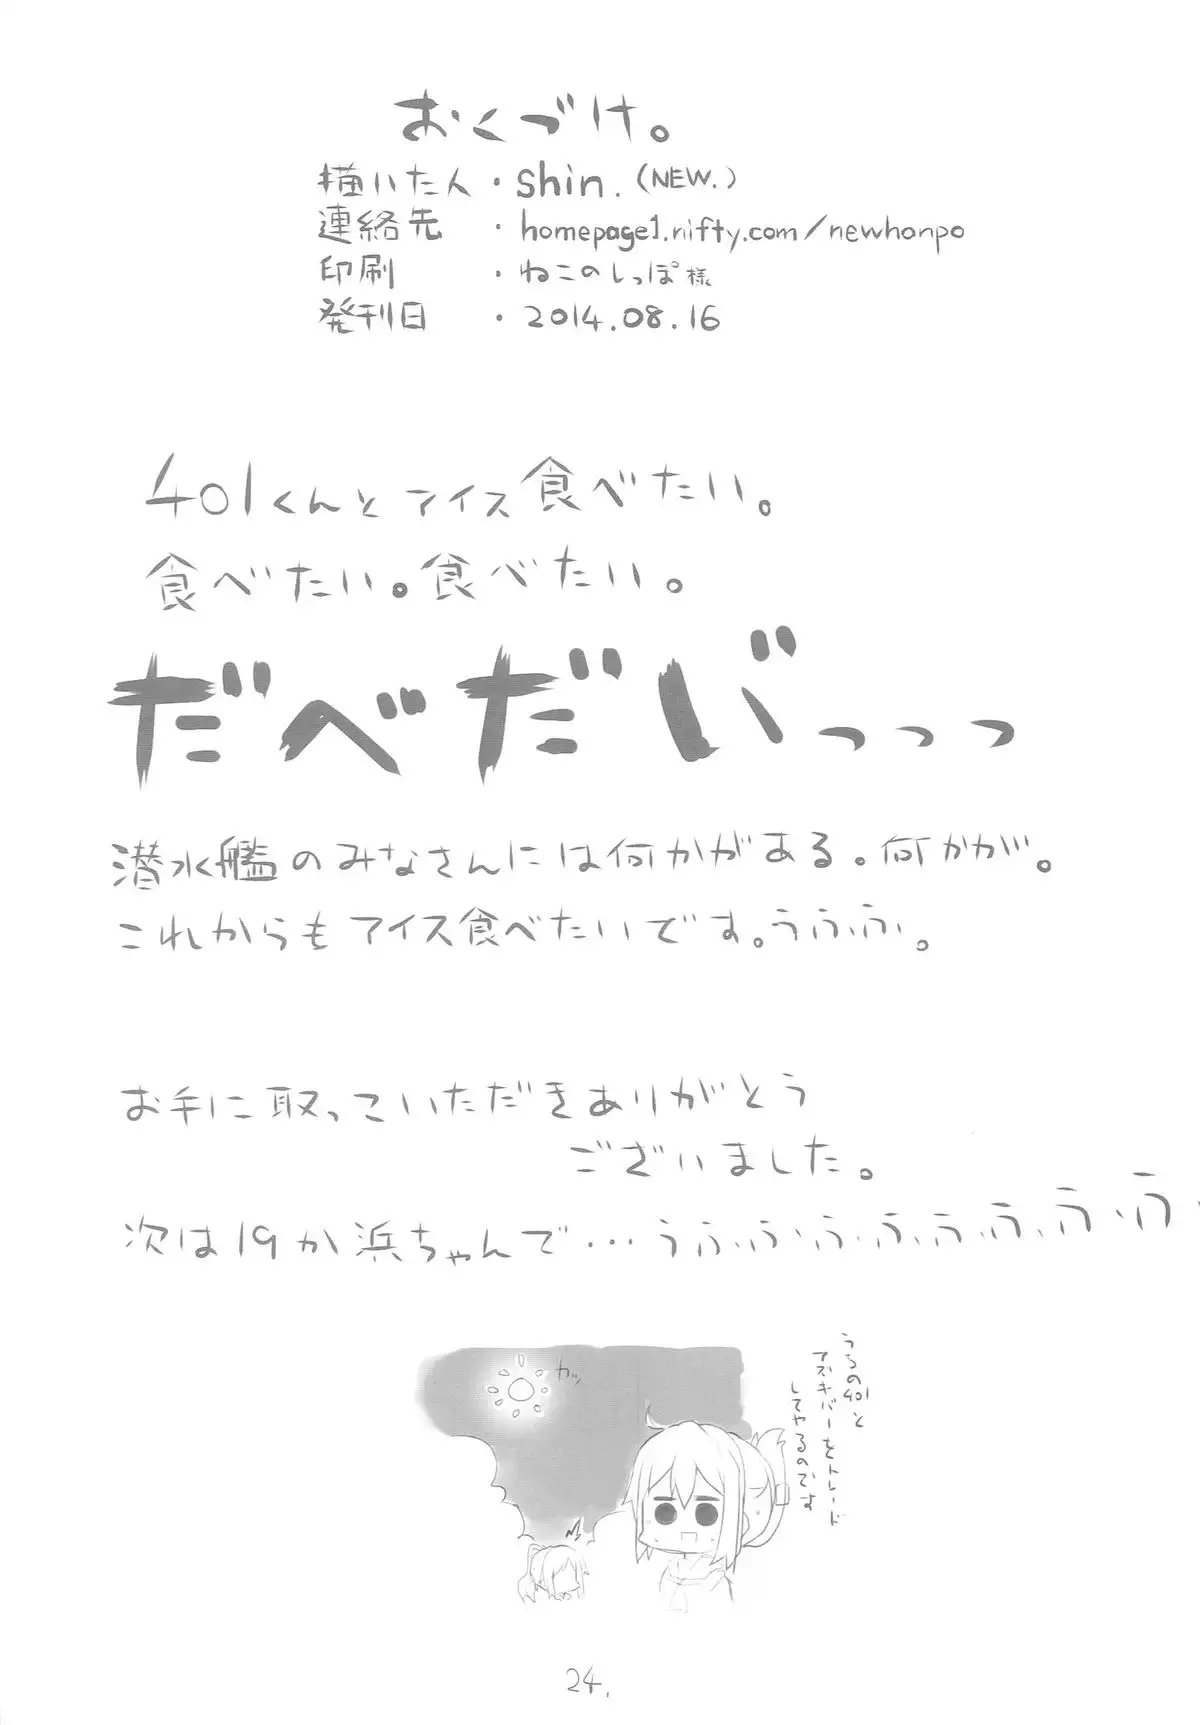 おくづけ。
描いた人・shin.（NEW.）
連絡先・homepage1.nifty.com/newhonpo
印刷・ねこのしっぽ様
発刊日・2014.08.16
401くんとアイス食べたい。
食べたい。食べたい。
だべだい゛っっっ
潜水艦のみなさんには何かがある。何かが。
これからもアイス食べたいです。うふふ。
お手に取っていただきありがとう
ございました。
次は19か浜ちゃんで・・・うふふふふふふふふ
カッ
うちの401と
アズキバーをトレード
してやるのです
24.